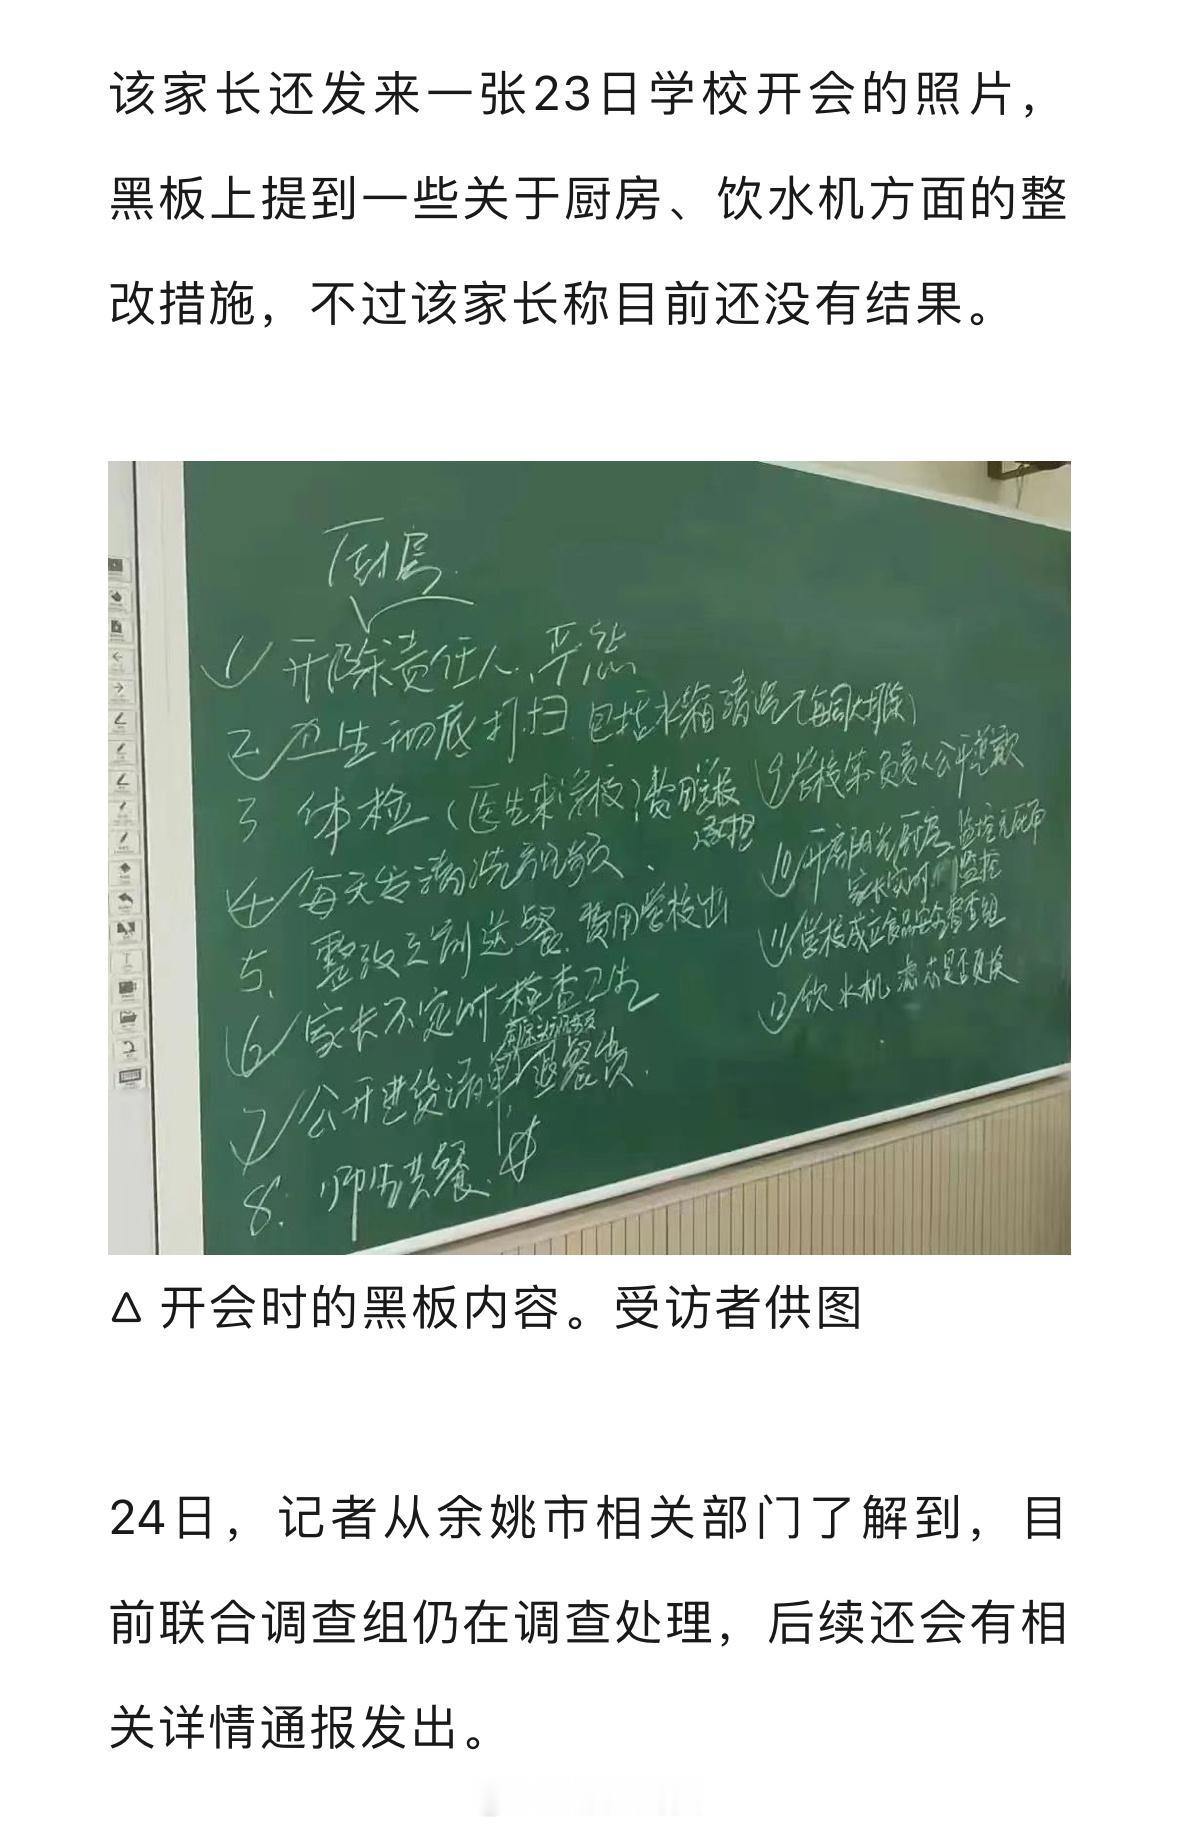 该家长还发来一张23日学校开会的照片，
黑板上提到一些关于厨房、饮水机方面的整
改措施，不过该家长称目前还没有结果。
厨房
① 开除责任人、严惩
② 卫生彻底打扫 包括水箱清洗（每周大扫除）
3 体检（医生来学校）费用学校
④ 每天发清洗视频、
5、整改之前送餐、费用学校出
⑥ 家长不定时检查卫生
⑦ 公开进货清单，退餐费.
8. 师生共餐、
⑨ 学校第一负责人公开道歉
⑩ 开高阳光厨房 监控无死角
家长实时监控
⑪ 学校成立食品安全督查组
⑫ 饮水机滤芯是否更换
△ 开会时的黑板内容。受访者供图
24日，记者从余姚市相关部门了解到，目
前联合调查组仍在调查处理，后续还会有相
关详情通报发出。